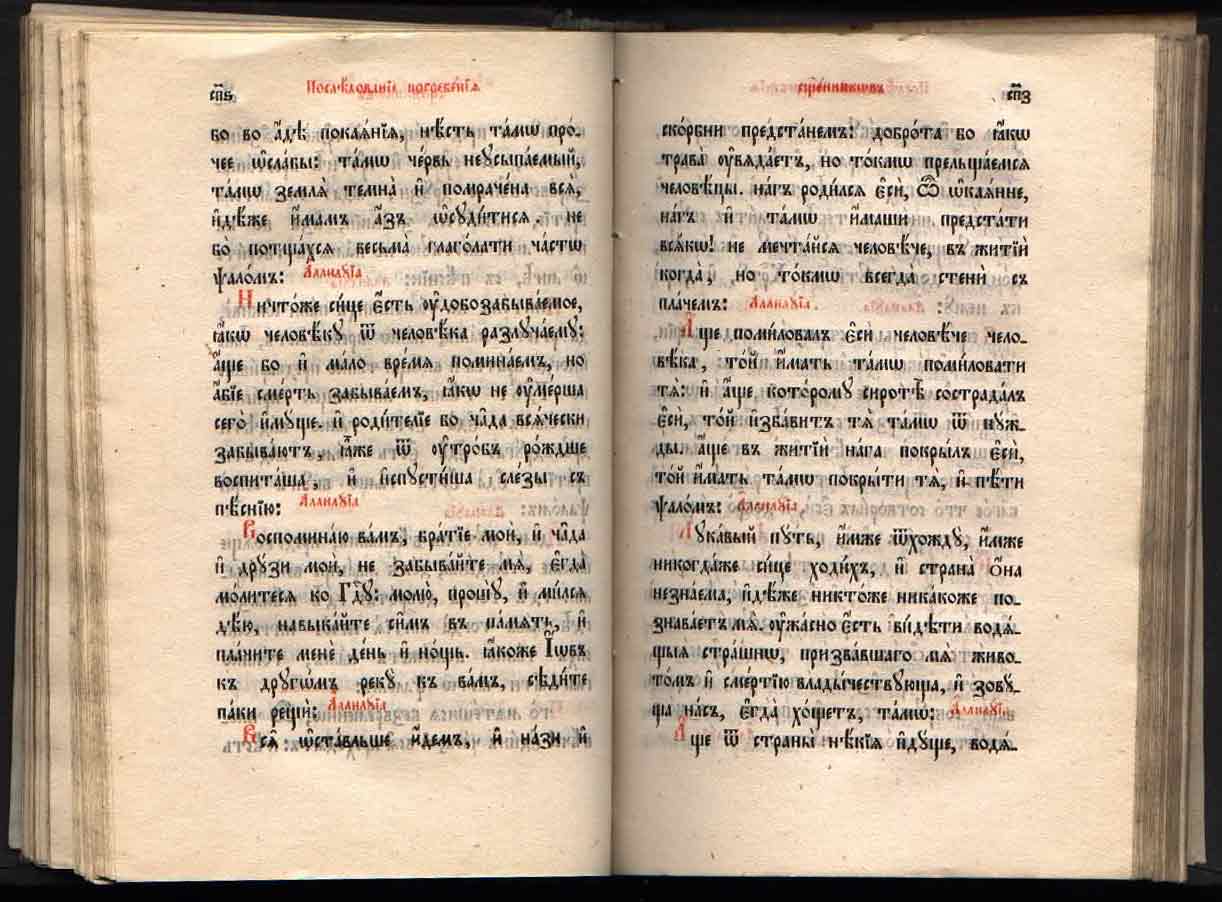 сп҃ѕ
Послѣдованїѐ погребе́нїѧ
бо во а҆́дѣ покаѧ́нїѧ, нѣ́сть та́мѡ про́-
чее ѡ҆сла́бы: та́мѡ че́рвь неꙋсыпа́емый,
та́мѡ землѧ̀ темна̀ и҆ помраче́на всѧ̀,
и҆дѣ́же и҆́мамъ а҆́зъ ѡ҆сꙋди́тисѧ. не
бо̀ потща́хсѧ весьма̀ глаго́лати ча́стѡ
ѱало́мъ: А҆ллилꙋ́їа
Ничто́же си́це є҆́сть ᲂу҆добозабыва́емое,
ꙗ҆́кѡ человѣ́кꙋ ѿ человѣ́ка разлꙋча́емꙋ:
а҆́ще бо и҆ ма́ло вре́мѧ помина́емъ, но
а҆́бїе сме́рть забыва́емъ, ꙗ҆́кѡ не ᲂу҆ме́рша
сего̀ и҆мꙋще. и҆ роди́телїе бо ча̑да всѧ́чески
забыва́ютъ, ꙗ҆̀же ѿ ᲂу҆тро́бъ ро́ждше
воспита́ша, и҆ и҆спꙋсти́ша сле́зы съ
пѣ́снїю: А҆ллилꙋ́їа
Воспомина́ю ва́мъ, бра́тїе моѝ, и҆ ча̑да
и҆ дрꙋ́зи моѝ, не забыва́йте мѧ̀, є҆гда̀
мо́литесѧ ко Гдⷭ҇ꙋ: молю̀, прошꙋ̀, и҆ ми́лсѧ
дѣ́ю, навыка́йте си̑мъ въ па́мѧть, и҆
пла́чите менѐ де́нь и҆ но́щь. ꙗ҆́коже І҆́ѡвъ
къ дрꙋгѡ́мъ рекꙋ̀ къ ва́мъ, сѣди́те
па́ки рещѝ: А҆ллилꙋ́їа
Всѧ̑ ѡ҆ста́вльше и҆́демъ, и҆ на́зи и҆
сщ҃е́нникѡвъ
сп҃з
ско́рбни предста́немъ: добро́та бо ꙗ҆́кѡ
трава̀ ᲂу҆вѧда́етъ, но то́кмѡ прельща́емсѧ
человѣ́цы. на́гъ роди́лсѧ є҆сѝ, ѽ ѡ҆каѧ́нне,
на́гъ и҆ та́мѡ и҆́маши предста́ти
всѧ́кѡ! не мечта́йсѧ человѣ́че, въ житїѝ
когда̀, но то́кмѡ всегда̀ стенѝ съ
пла́чемъ: А҆ллилꙋ́їа.
А҆́ще поми́ловалъ є҆сѝ человѣ́че чело-
вѣ́ка, то́й и҆́мать та́мѡ поми́ловати
тѧ̀: и҆ а҆́ще кото́ромꙋ сиротѣ̀ сострада́лъ
є҆сѝ, то́й и҆зба́витъ тѧ̀ та́мѡ ѿ нꙋ́ж-
ды. а҆́ще въ житїѝ на́га покры́лъ є҆сѝ,
то́й и҆́мать та́мѡ покры́ти тѧ̀, и҆ пѣ́ти
ѱало́мъ: А҆ллилꙋ́їа
Лꙋка́вый пꙋ́ть, и҆́мже ѿхождꙋ̀, и҆́мже
никогда́же си́це ходи́хъ, и҆ страна̀ ѻ҆́на
незна́ема, и҆дѣ́же никто́же ника́коже по-
знава́етъ мѧ̀. ᲂу҆жа́сно є҆́сть ви́дѣти водѧ́-
щыѧ стра́шнѡ, призва́вшаго мѧ̀ живо-
то́мъ и҆ сме́ртїю влады́чествꙋюща, и҆ зовꙋ́-
ща на́съ, є҆гда̀ хо́щетъ, та́мѡ: А҆ллилꙋ́їа
А҆́ще ѿ страны̀ нѣ́кїѧ и҆дꙋ́ще, водѧ́-